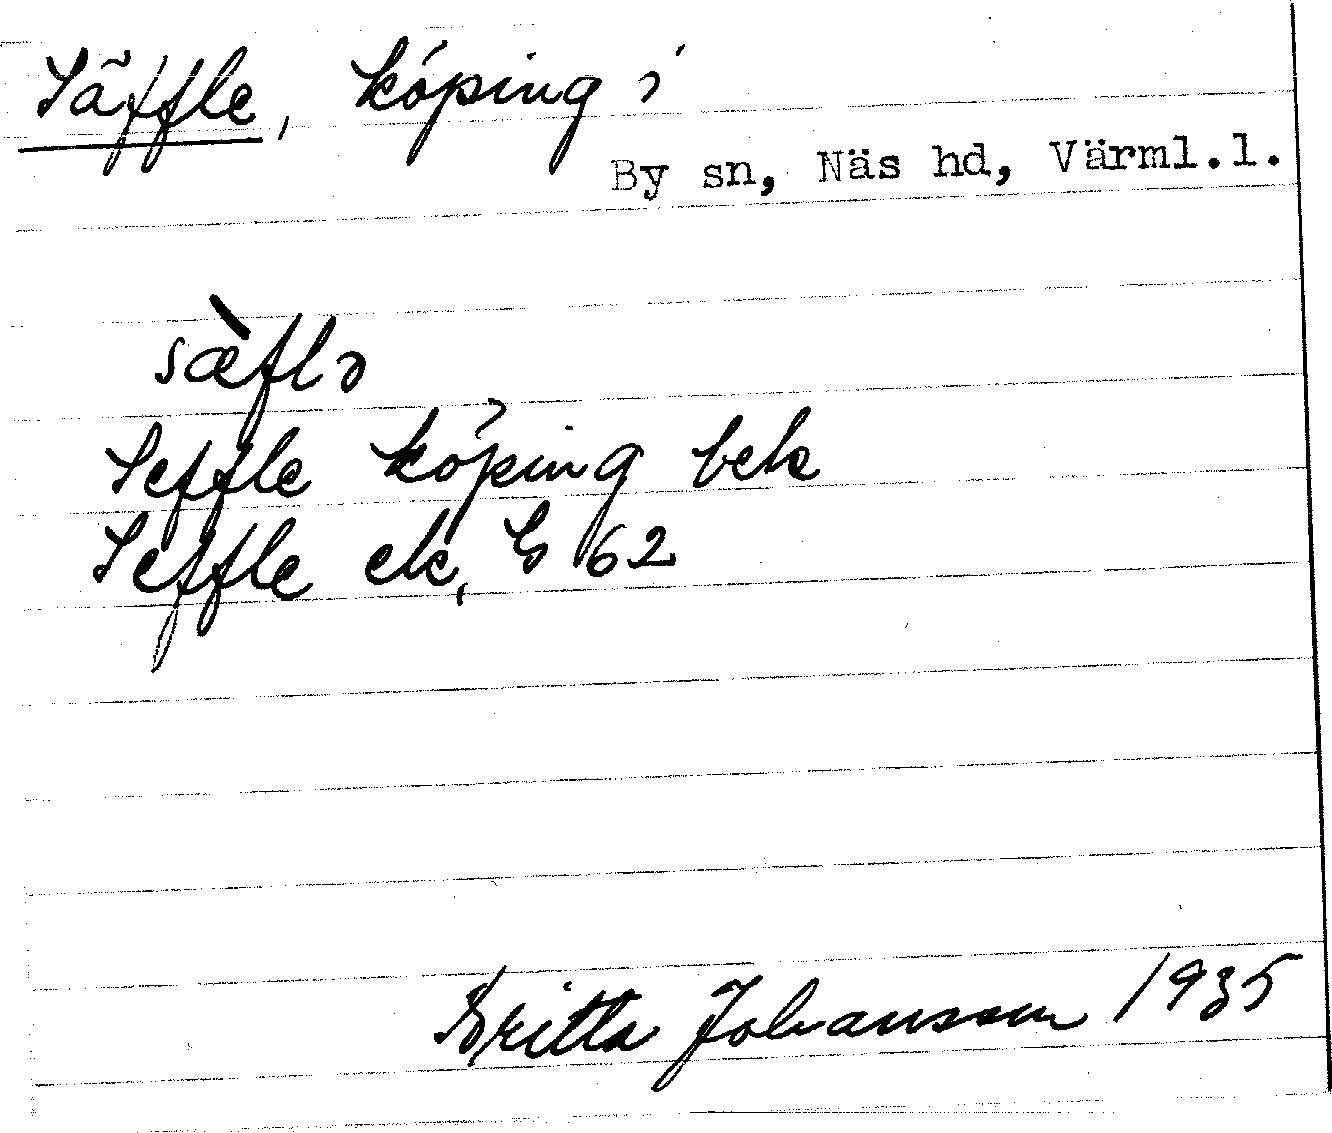 Säffle, köping i
By sn, Näs hd, Värml.l.
sæ̀flə
Seffle köping bek
Seffle ek, G 62
Britta Johansson 1935